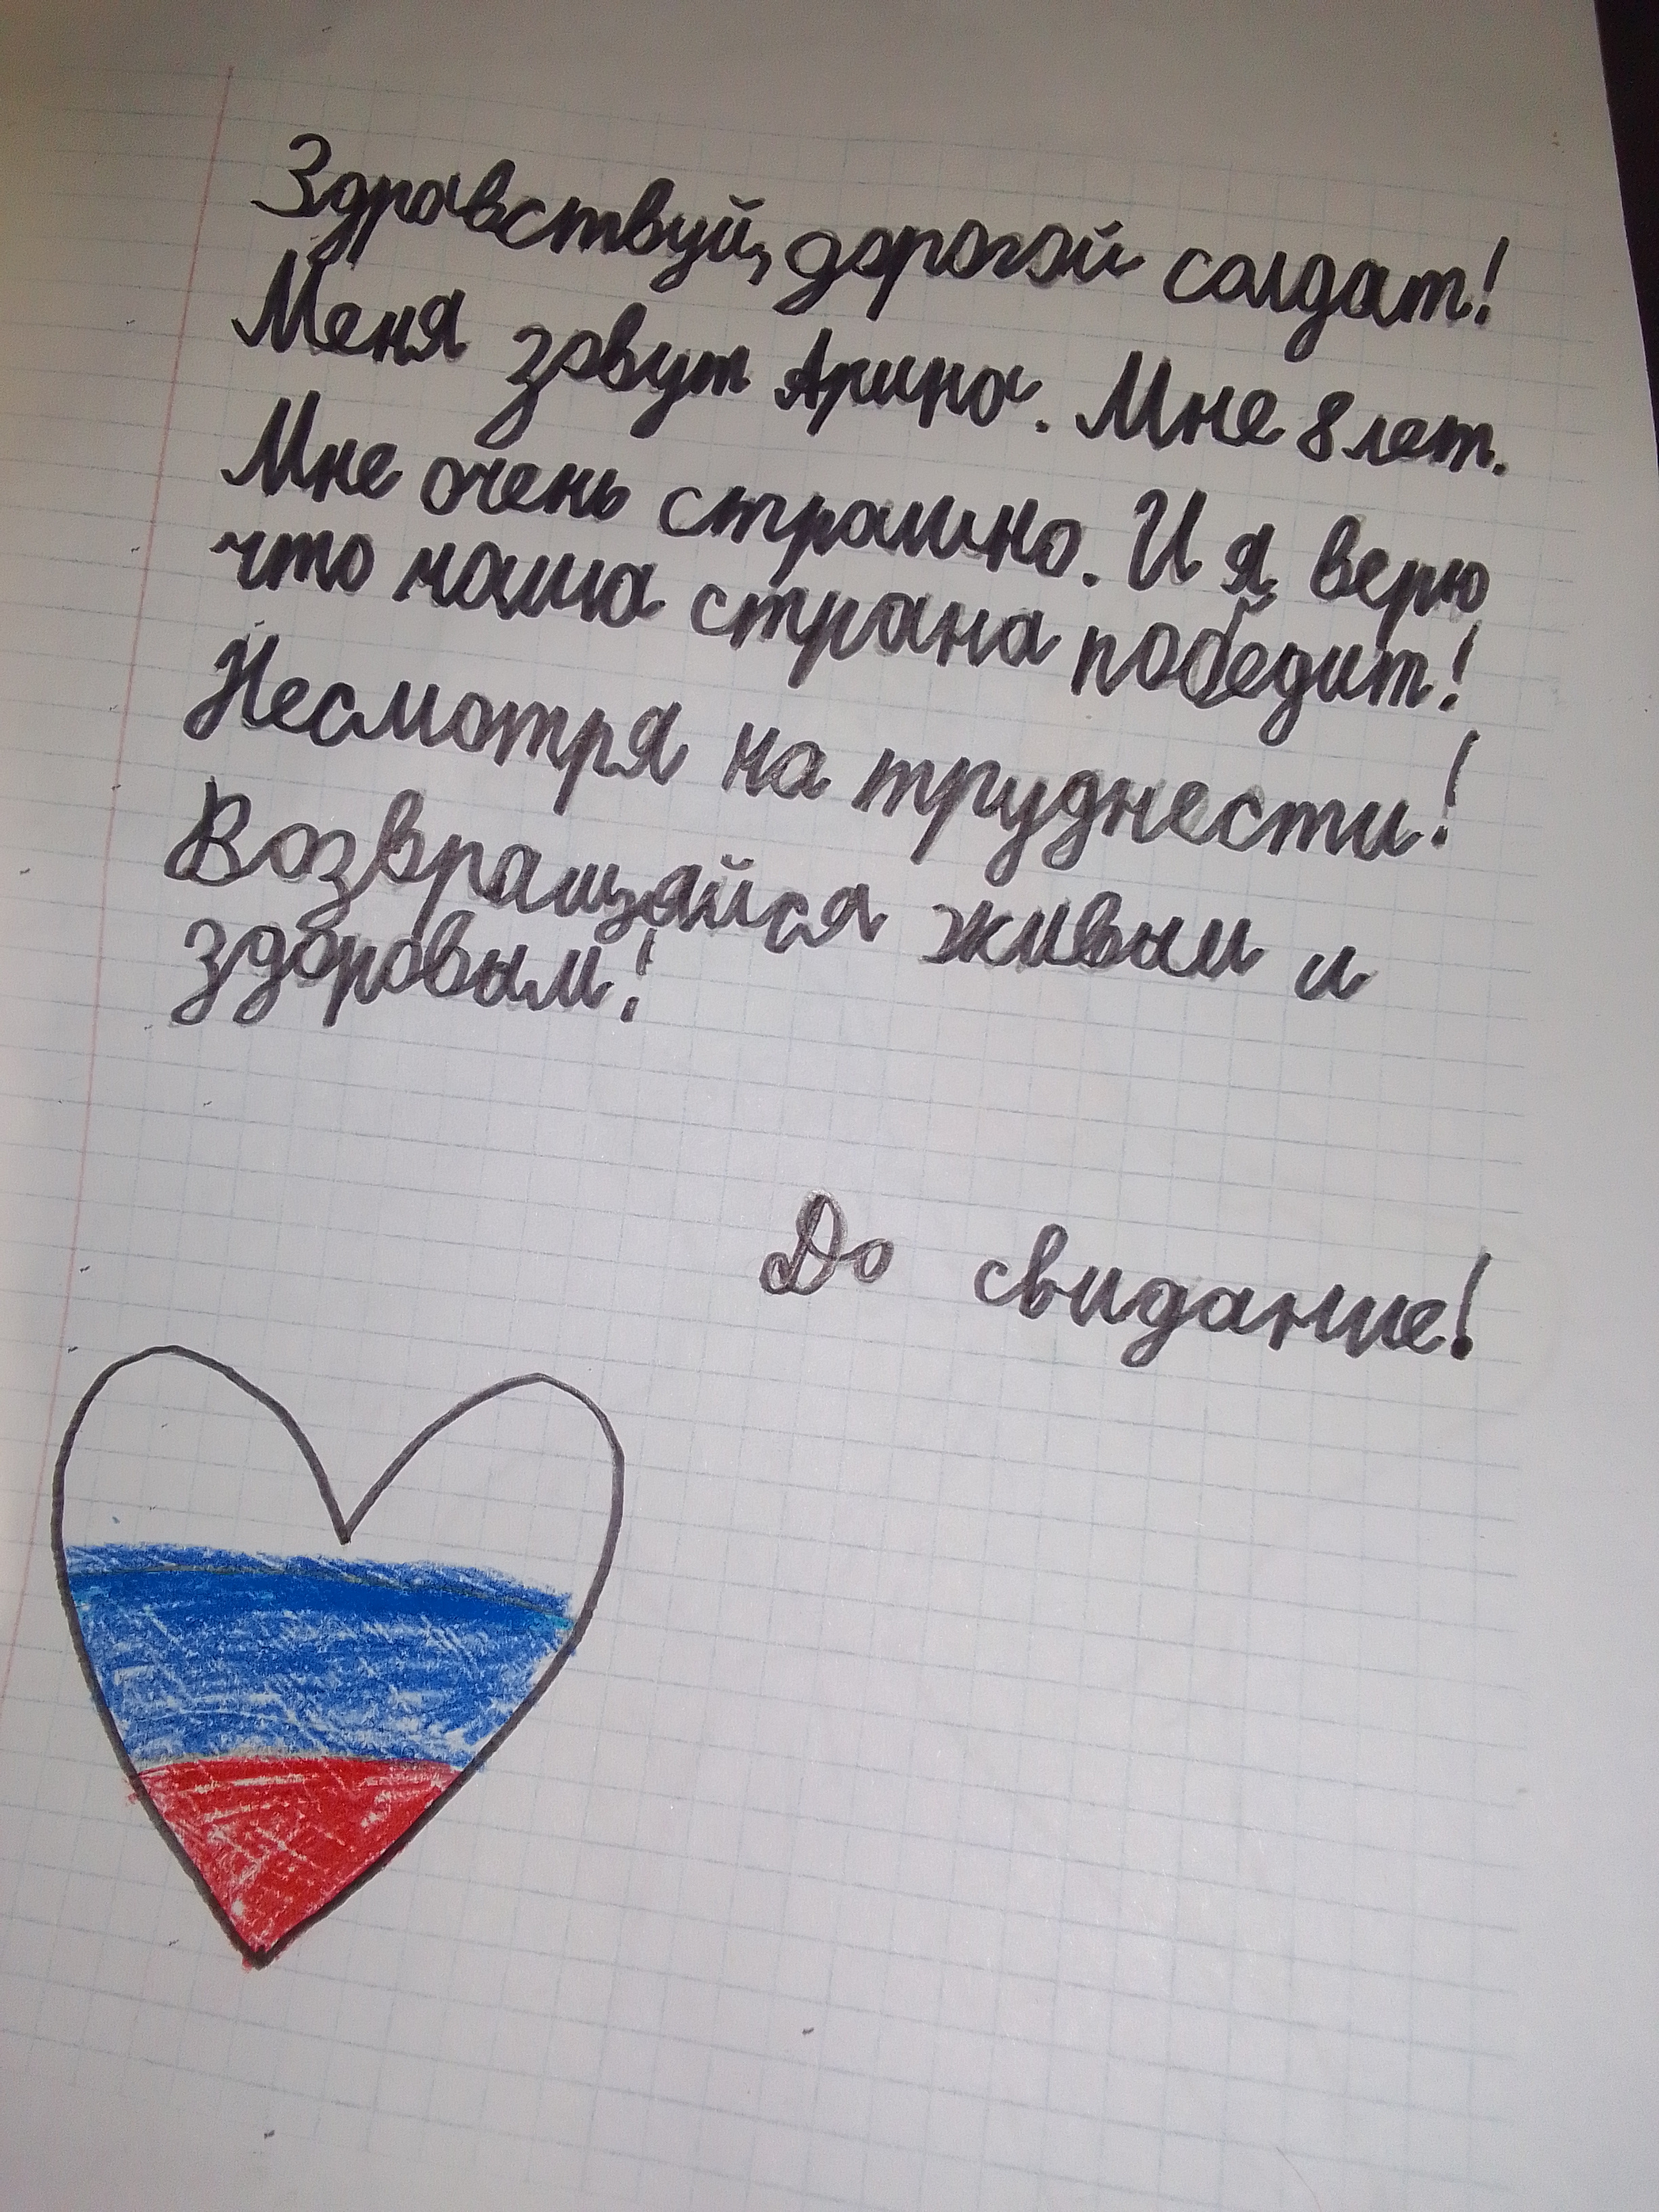 Здравствуй, дорогой солдат!
Меня зовут Арина. Мне 8 лет.
Мне очень страшно. И я верю
что наша страна победит!
Несмотря на труднести!
Возвращайся живым и
здоровым!
До свидание!